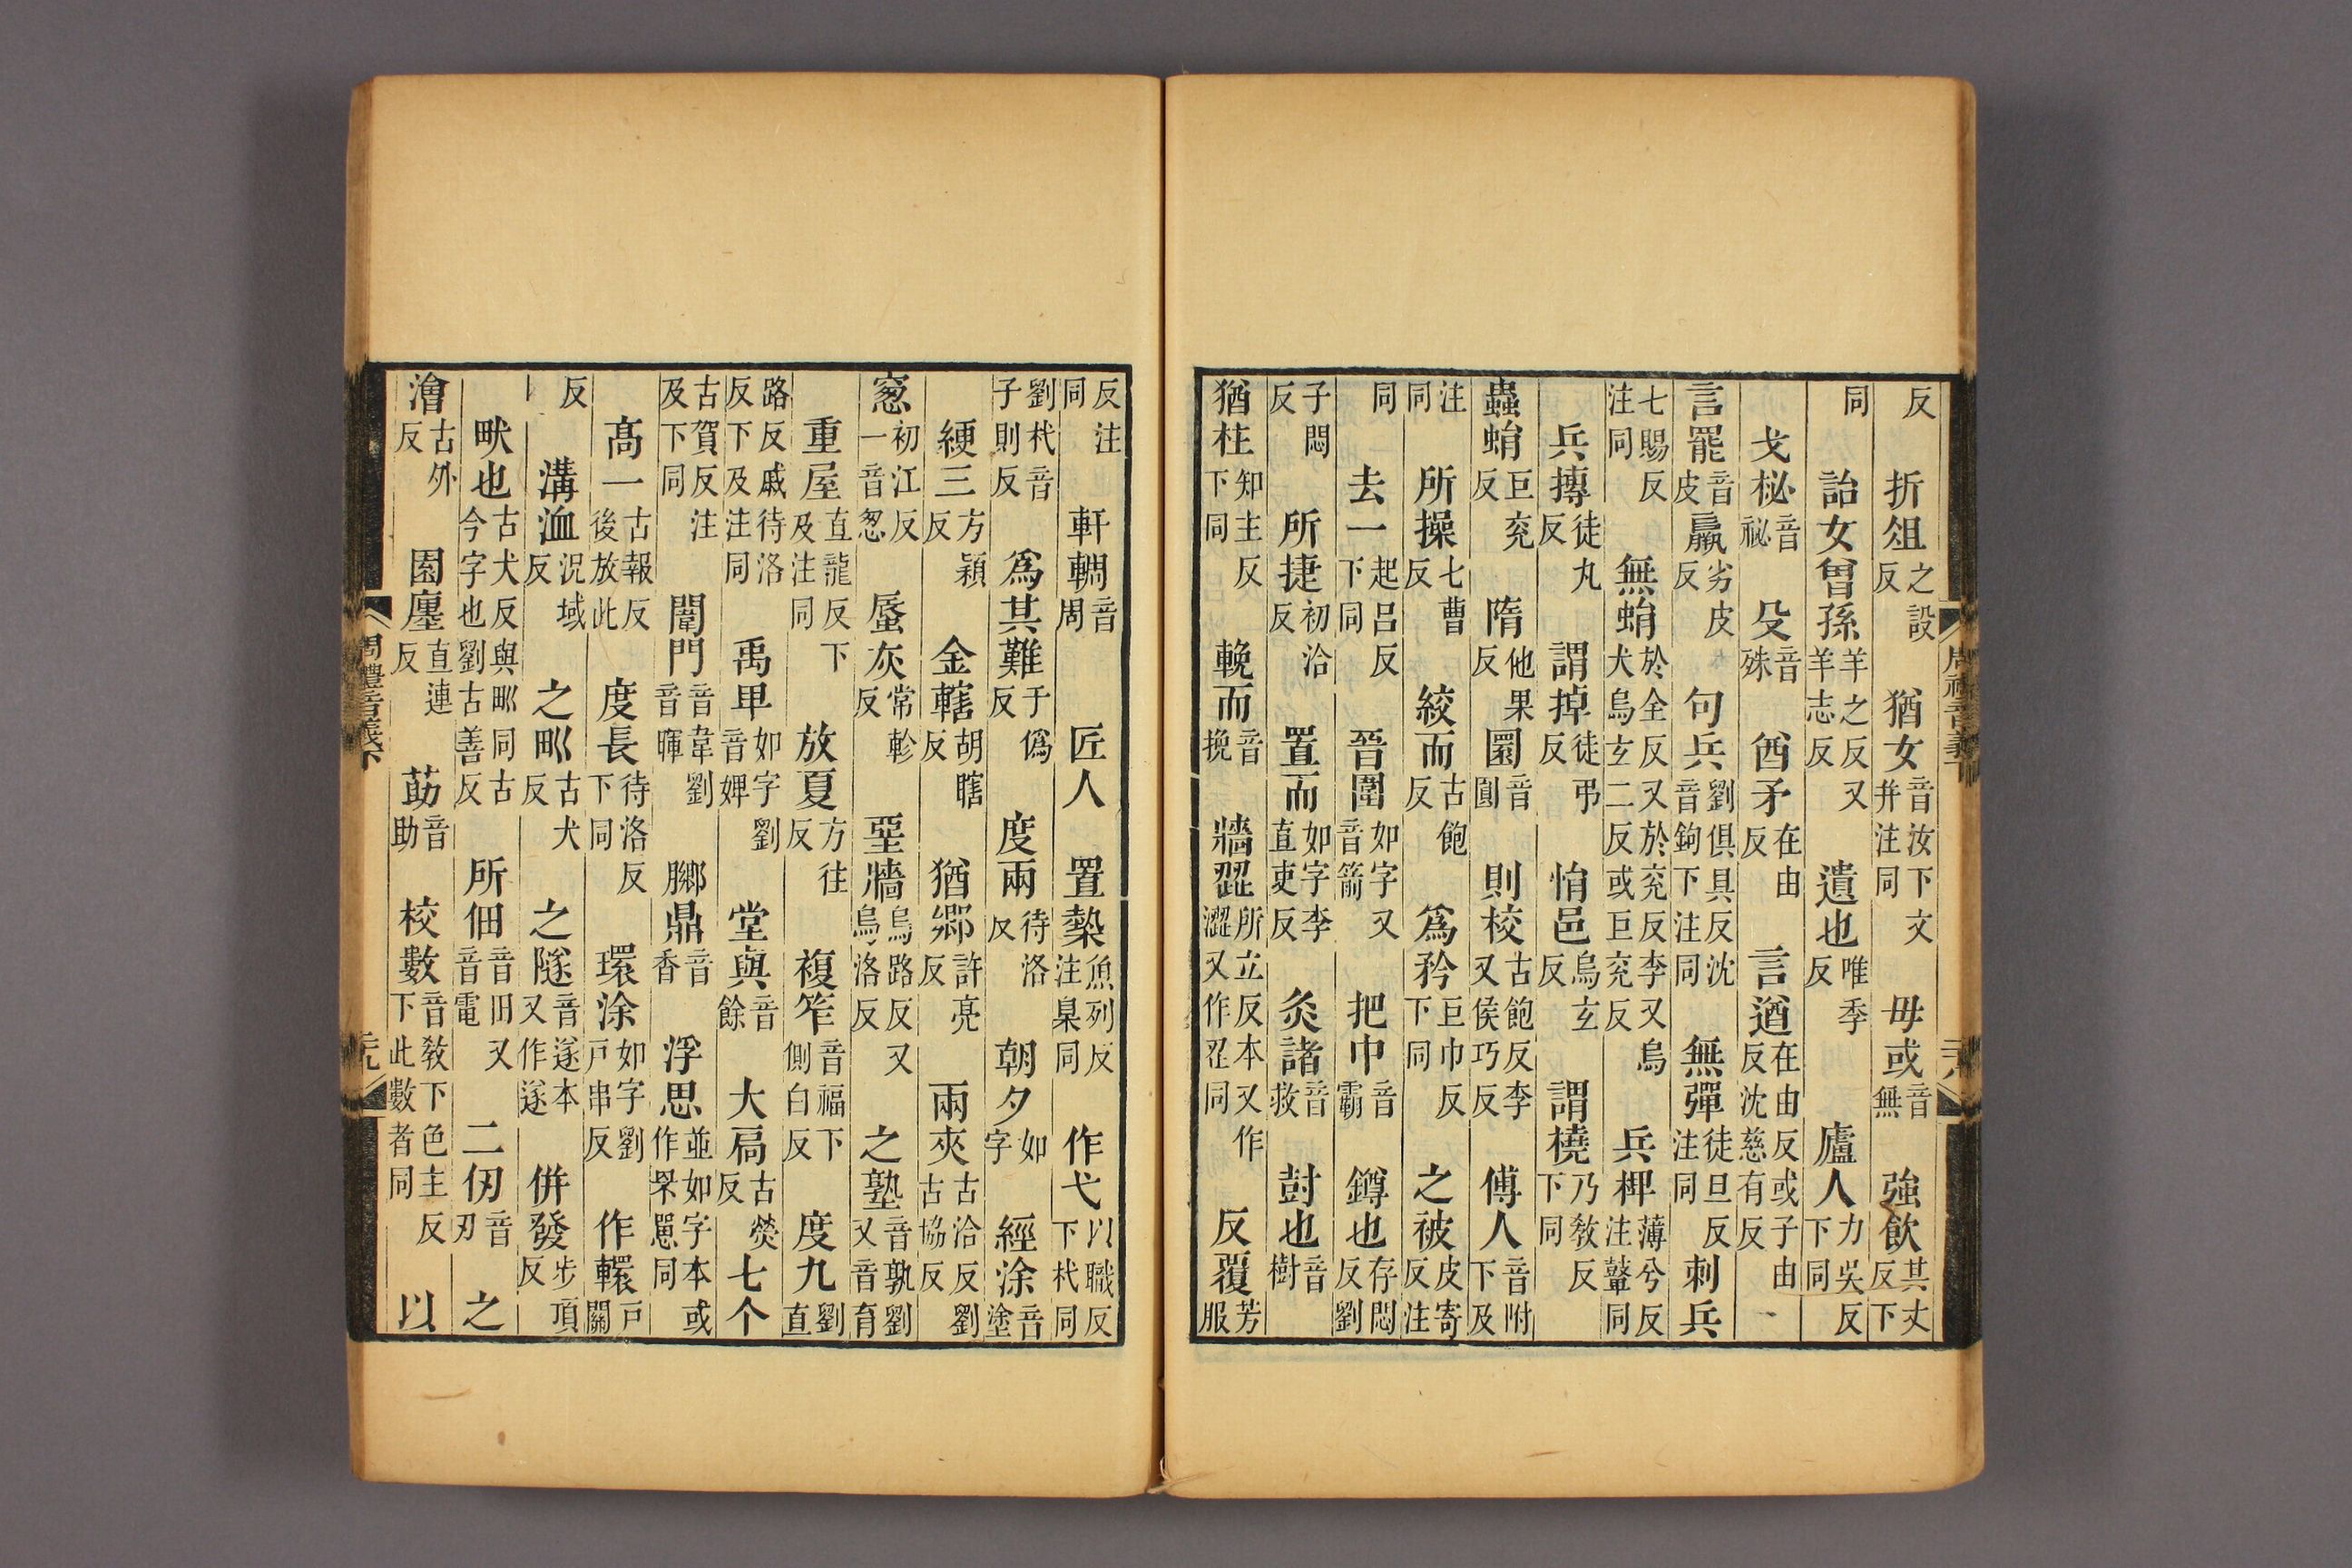 周禮音義下
反 折俎之設反 猶女音汝下文并注同 毋或音無 強飲其丈反下
同 詒女曾孫羊之反又羊志反 遺也唯季反 廬人力吳反下同
戈柲音祕 殳音殊 酋矛在由反 言遒在由反或子由反沈慈有反
言罷音皮 羸劣皮反 句兵劉俱具反沈音鉤下注同 無彈徒旦反注同 刺兵
七賜反注同 無蜎於全反又於兖反李又烏犬烏玄二反或巨兖反 兵椑薄兮反注鼙同
兵摶徒丸反 謂掉徒弔反 悁邑烏玄反 謂橈乃敎反下同
蟲蜎巨兖反 隋他果反 圜音圓 則校古飽反李又侯巧反 傅人音附下及
注同 所操七曹反 絞而古飽反 爲矜巨巾反下同 之被皮寄反注
同 去一起呂反下同 晉圍如字又音箭 把中音霸 鐏也存悶反劉
子悶反 所捷初洽反 置而如字李直吏反 灸諸音救 尌也音樹
猶柱知主反下同 輓而音挽 牆歰所立反本又作澀又作歮同 反覆芳服
反注同 軒輖音周 匠人 置槷魚列反注臬同 作弋以職反下杙同
劉杙音子則反 爲其難于僞反 度兩待洛反 朝夕如字 經涂音塗
綆三方穎反 金轄胡瞎反 猶鄉許亮反 兩夾古洽反劉古協反
窻初江反一音怱 蜃灰常軫反 堊牆烏路反又烏洛反 之塾音孰劉又音育
重屋直龍反下及注同 放夏方往反 複笮音福下側白反 度九劉直
路反戚待洛反下及注同 禹卑如字劉音婢 堂與音餘 大扃古熒反 七个
古賀反注及下同 闈門音韋劉音暉 膷鼎音香 浮思並如字本或作罘罳同
高一古報反後放此 度長待洛反下同 環涂如字劉戶串反 作轘戶關
反 溝洫況域反 之𤰕古犬反 之隧音遂本又作遂 併發步頂反
畎也古犬反與𤰕同古今字也劉古善反 所佃音田又音電 二仞音刃 之
澮古外反 園廛直連反 莇音助 校數音敎下色主反下此數者同 以
周禮音義下